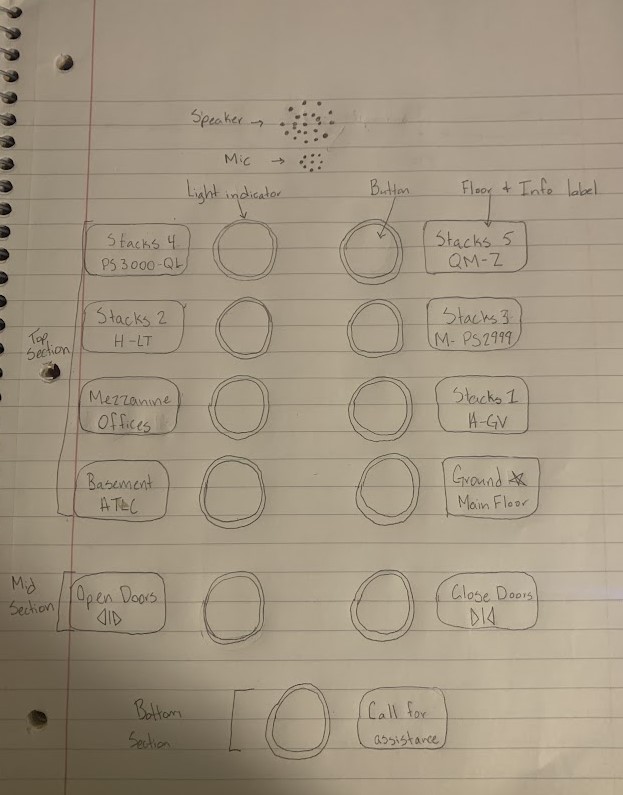 Speaker →
Mic →
Light indicator
Button
Floor + Info label
Top
Section
Stacks 4
PS3000-QL
Stacks 5
QM-Z
Stacks 2
H-LT
Stacks 3
M- PS2999
Mezzanine
Offices
Stacks 1
A-GV
Basement
ATEC
Ground ☆
Main Floor
Mid
Section
Open Doors
◁|▷
Close Doors
▷|◁
Bottom
Section
Call for
assistance